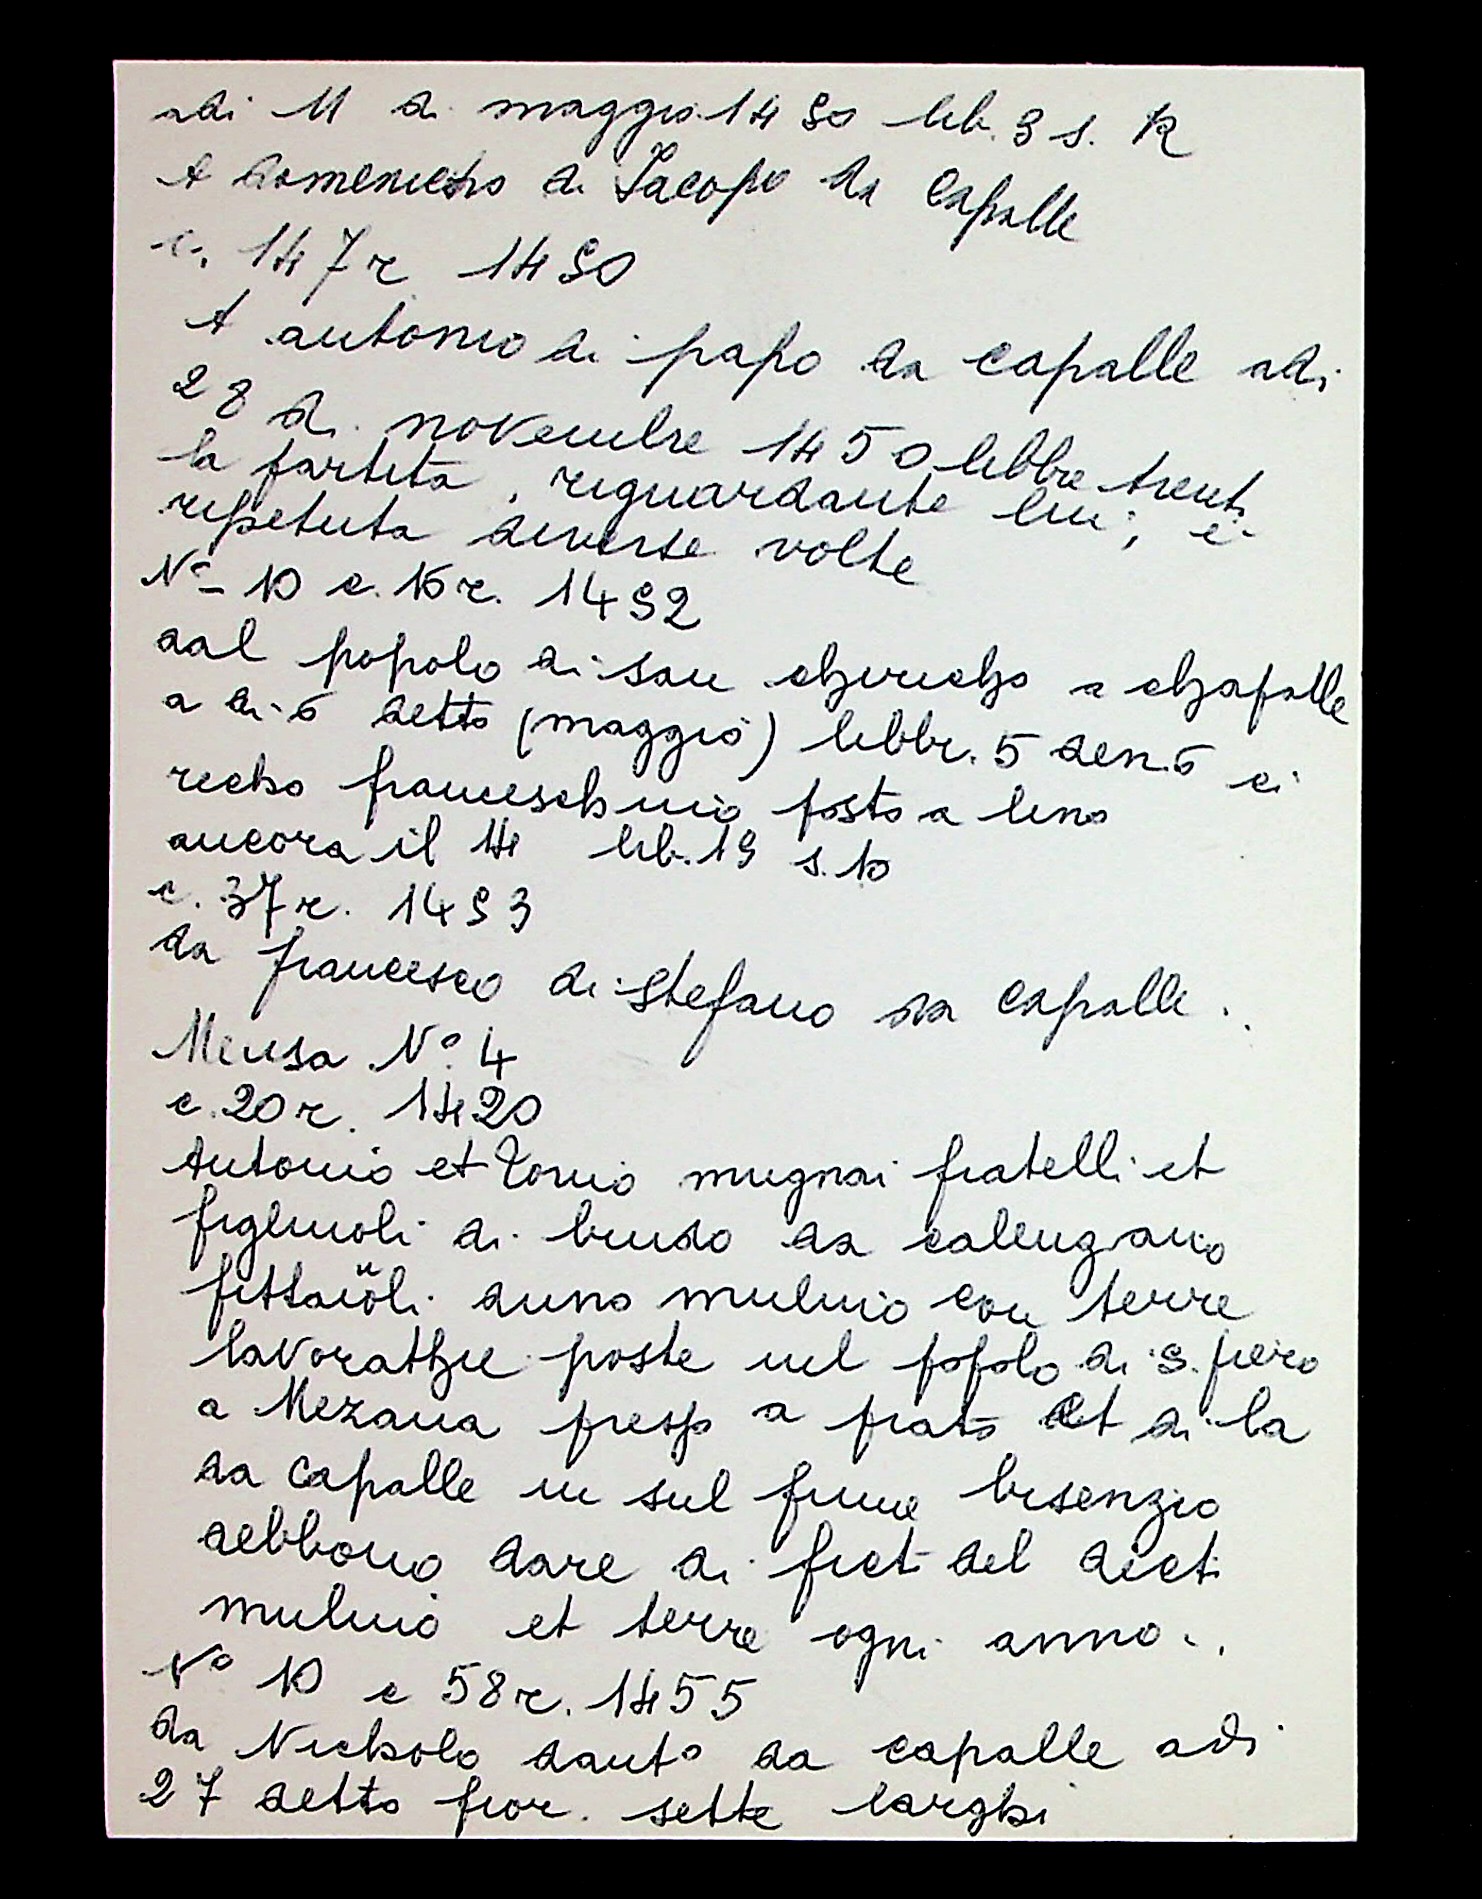 adi 11 di maggio 1450 lib. 9 s. 12
A domenicho di Jacopo da Capalle
c. 147r 1450
A antonio di papo da capalle adi
28 di novembre 1450 libbre trenti
la partita, riguardante lui, è
ripetuta diverse volte
N° 10 c. 16r. 1452
dal popolo di san chiricho a chapalle
a di 6 detto (maggio) libbr. 5 den. 6 ci
recho franceschino posto a lino
ancora il 14 lib. 19 s. 10
c. 37r. 1453
da francesco di stefano da capalle..
Mensa N° 4
c. 20r. 1420
Antonio et Tonio mugnai fratelli et
figliuoli di brudo da calenzano
fittaiuoli duno mulino con terre
lavorathie poste nel popolo di S. piero
a Mezana presso a prato et di la
da capalle in sul fiume bisenzio
debbono dare di ficti del dicti
mulino et terre ogni anno..
N° 10 c 58r. 1455
da Nicholo danto da capalle adi
27 detto fior. sette larghi